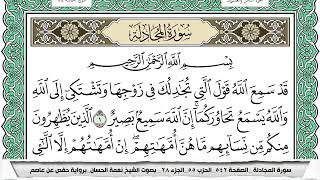 سُورَةُ المُجَادلَةِ
بِسْمِ اللَّهِ الرَّحْمَٰنِ الرَّحِيمِ
قَدْ سَمِعَ اللَّهُ قَوْلَ الَّتِي تُجَادِلُكَ فِي زَوْجِهَا وَتَشْتَكِي إِلَى اللَّهِ
وَاللَّهُ يَسْمَعُ تَحَاوُرَكُمَا إِنَّ اللَّهَ سَمِيعٌ بَصِيرٌ ١ الَّذِينَ يُظَاهِرُونَ
مِنكُم مِّن نِّسَائِهِم مَّا هُنَّ أُمَّهَاتِهِمْ إِنْ أُمَّهَاتُهُمْ إِلَّا الَّٰٓئِي
سورة المجادلة . الصفحة ٥٤٢ . الحزب ٥٥ . الجزء ٢٨ . بصوت الشيخ نعمة الحسان . برواية حفص عن عاصم